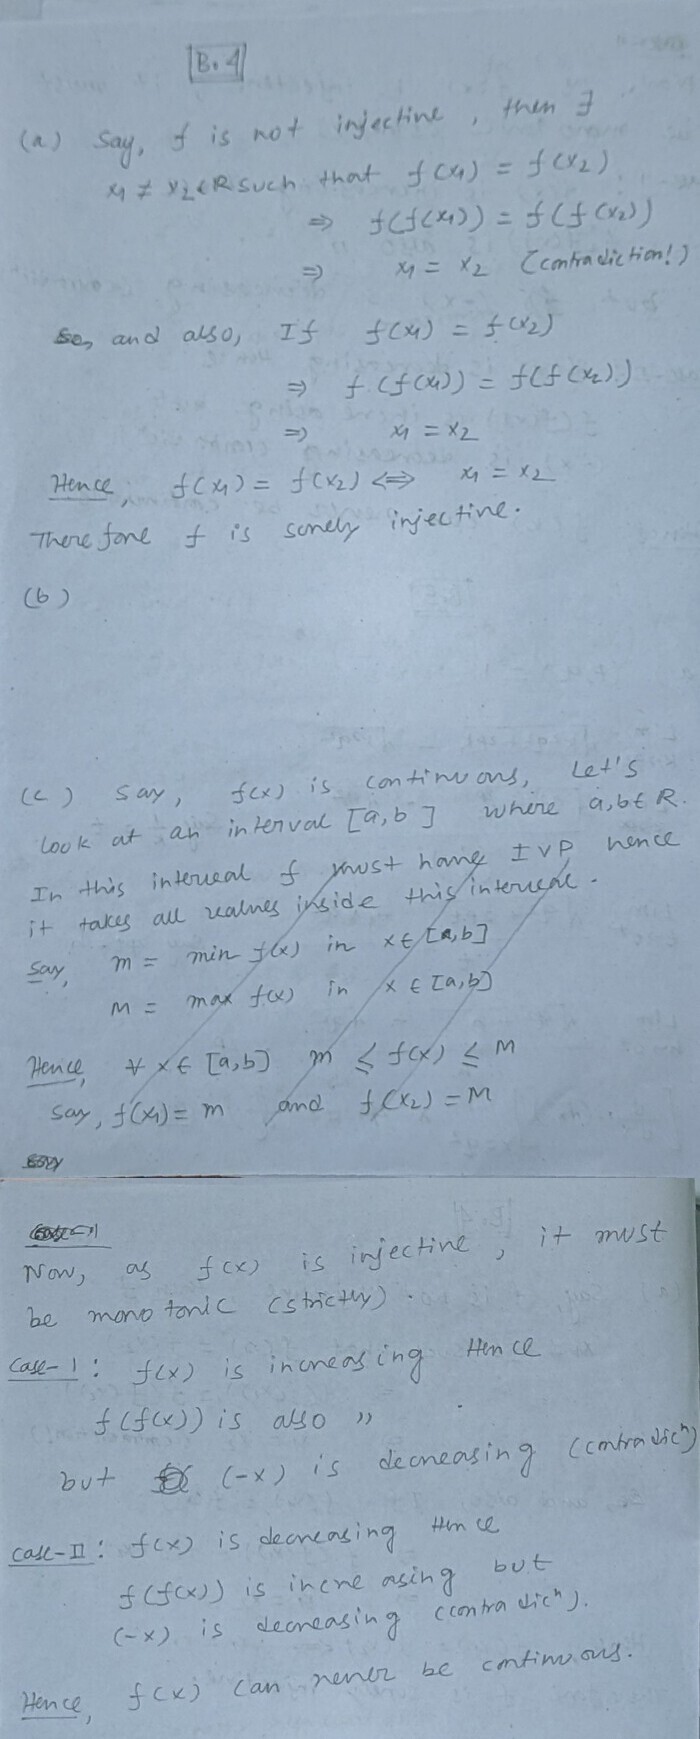 B.4
(a) Say, f is not injective, then ∃
x₁ ≠ x₂ ∈ R such that f(x₁) = f(x₂)
⇒ f(f(x₁)) = f(f(x₂))
⇒ x₁ = x₂ (contradiction!)
and also, If f(x₁) = f(x₂)
⇒ f(f(x₁)) = f(f(x₂))
⇒ x₁ = x₂
Hence, f(x₁) = f(x₂) ⇔ x₁ = x₂
Therefore f is surely injective.
(b)
(c) Say, f(x) is continuous, Let's
look at an interval [a,b] where a,b ∈ R.
In this interval f must have IVP hence
it takes all values inside this interval.
Say, m = min f(x) in x ∈ [a,b]
M = max f(x) in x ∈ [a,b]
Hence, ∀ x ∈ [a,b] m ≤ f(x) ≤ M
Say, f(x₁) = m and f(x₂) = M
Now, as f(x) is injective, it must
be monotonic (strictly).
Case-I : f(x) is increasing Hence
f(f(x)) is also "
but (-x) is decreasing (contradicⁿ)
Case-II : f(x) is decreasing Hence
f(f(x)) is increasing but
(-x) is decreasing (contradicⁿ).
Hence, f(x) can never be continuous.